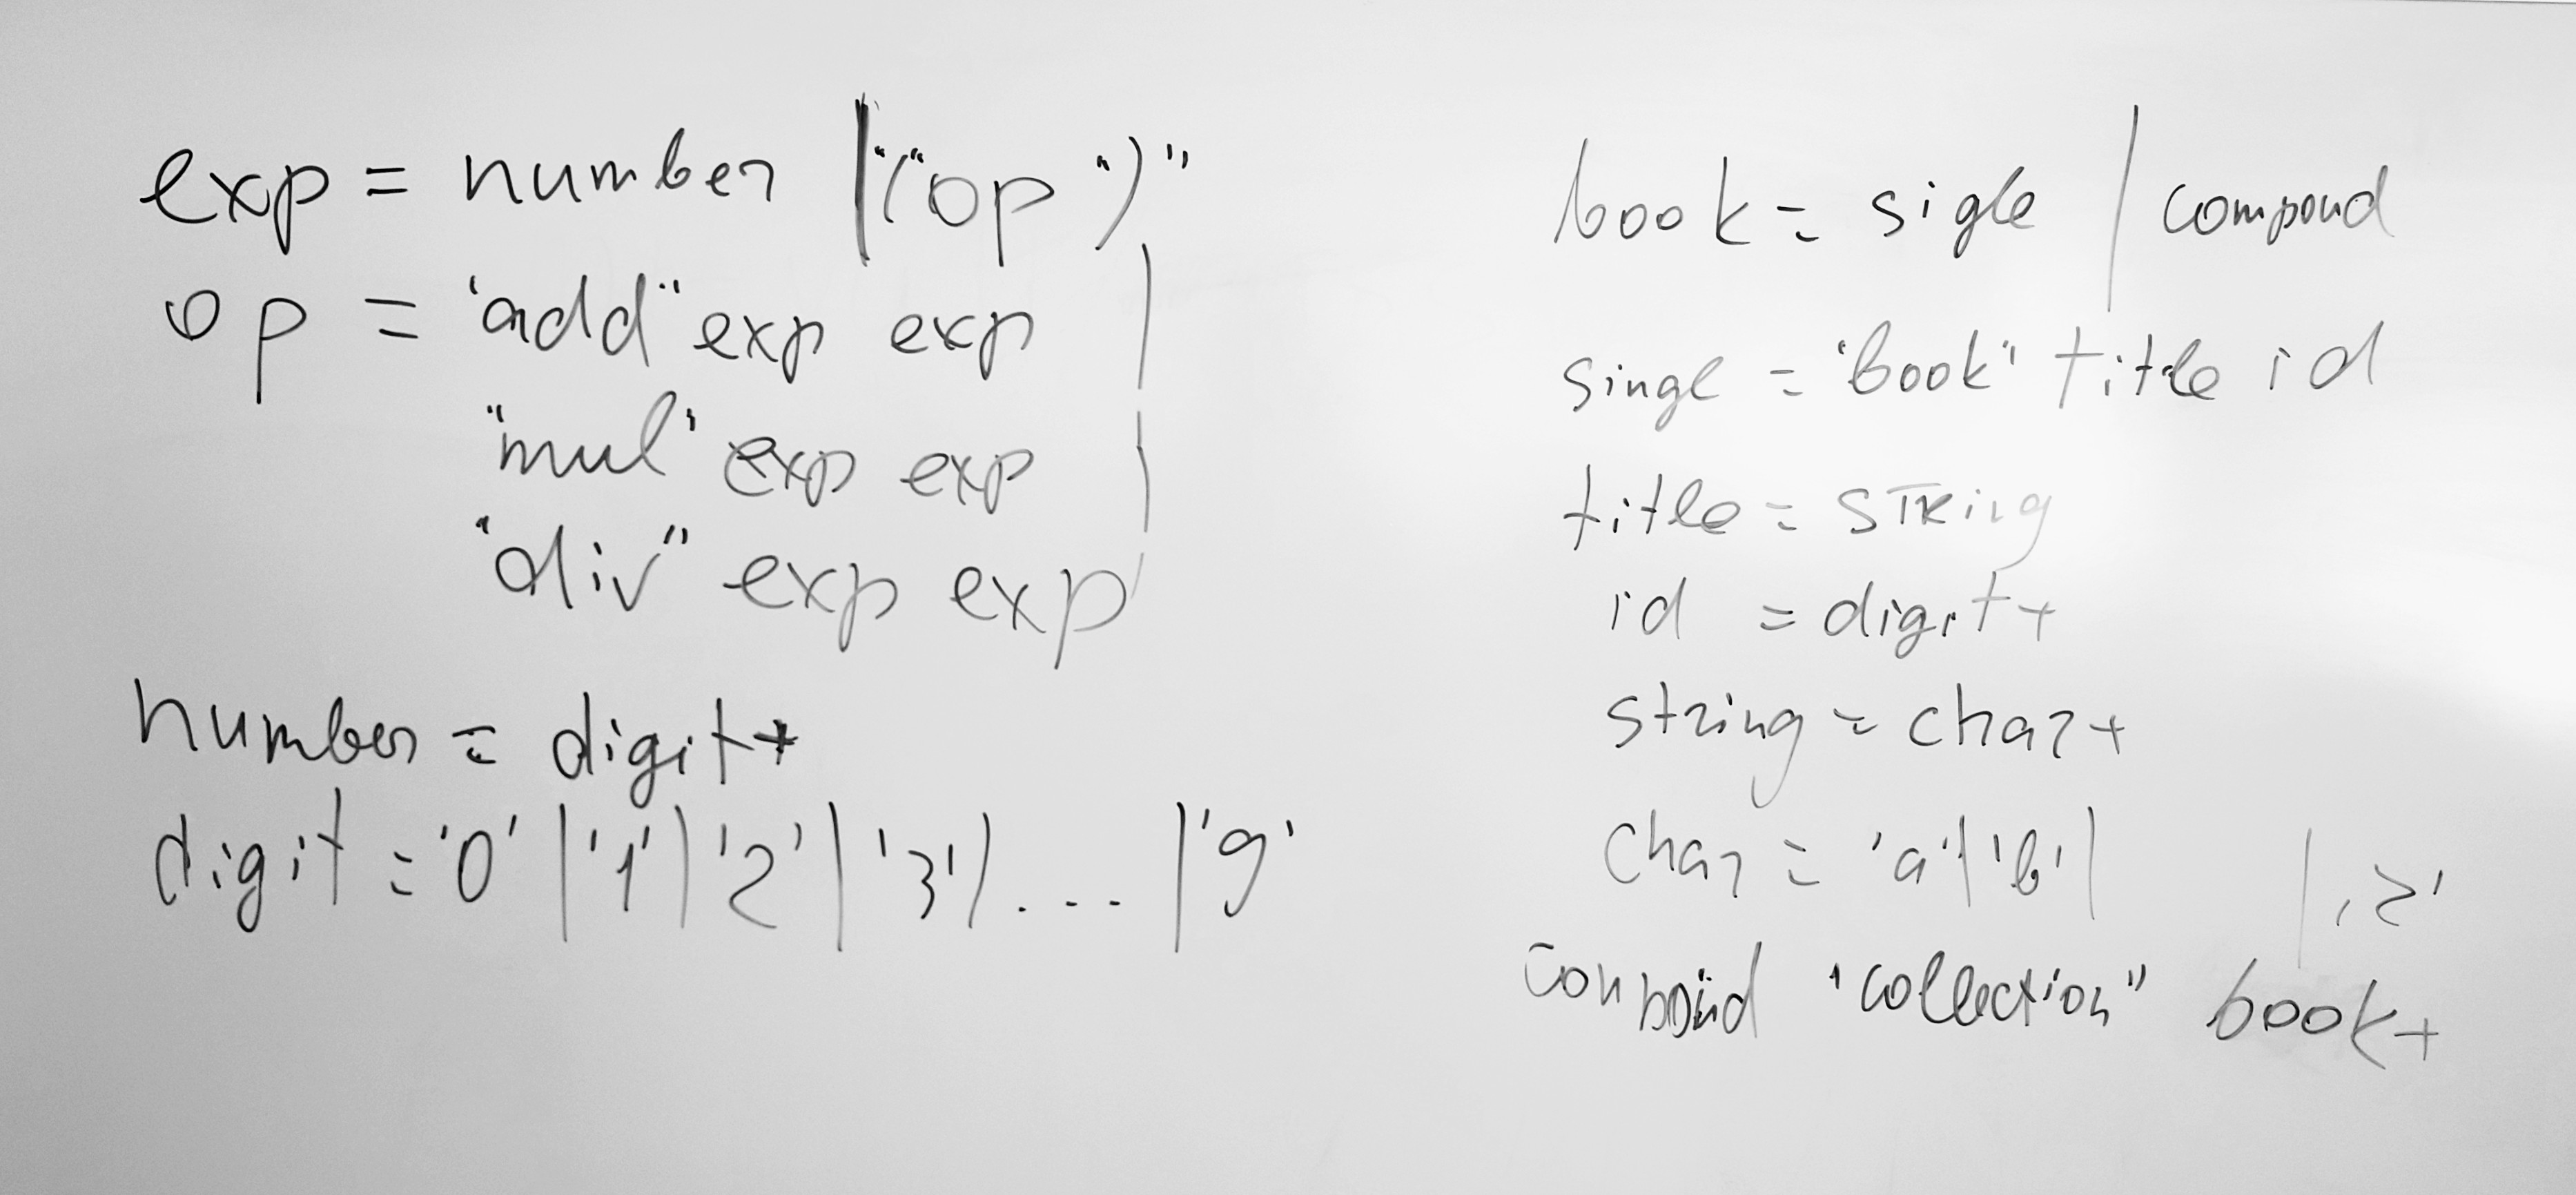 exp = number | "(" op ")"
op = "add" exp exp |
"mul" exp exp |
"div" exp exp
number = digit+
digit = '0' | '1' | '2' | '3' | ... | '9'
book = sigle | compound
single = "book" title id
title = string
id = digit+
string = char+
char = 'a' | 'b' | | 'z'
compound "collection" book+